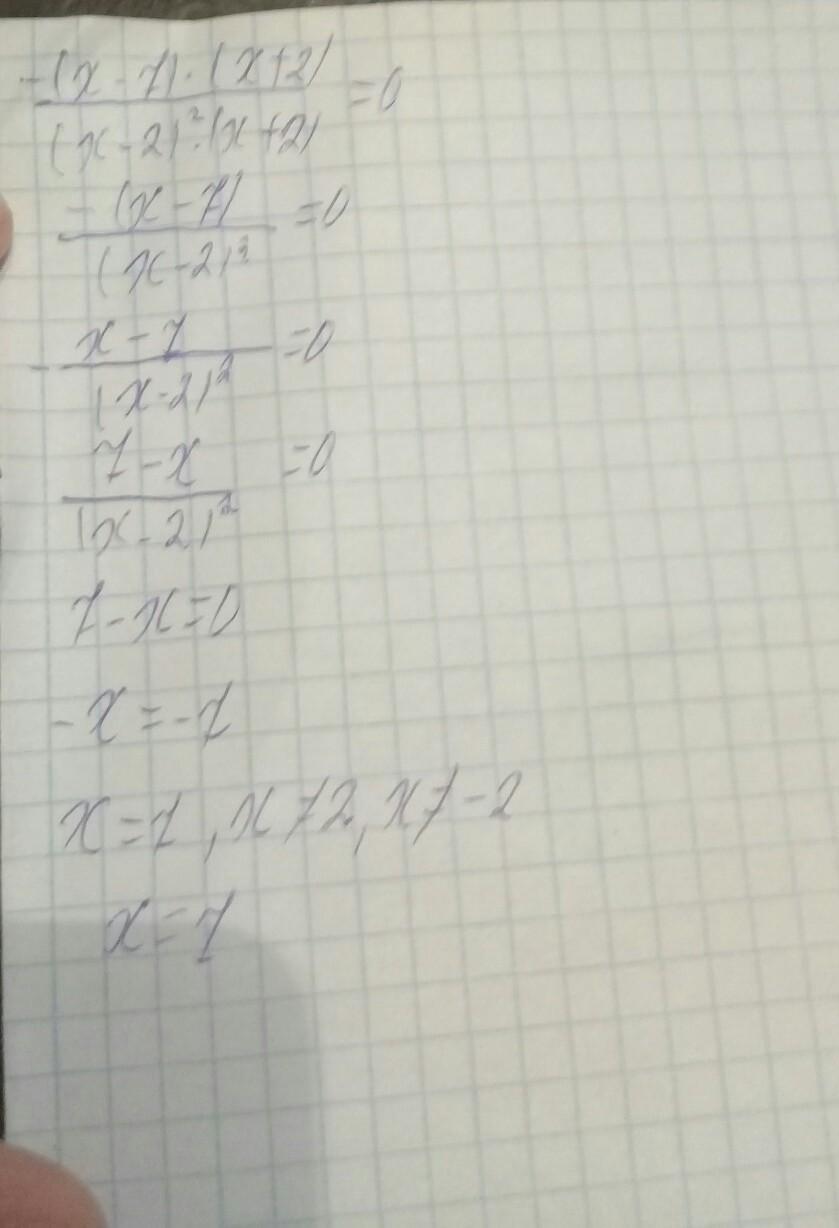 -(x-7)·(x+2)/(x-2)²·(x+2) =0
-(x-7)/(x-2)² =0
- x-7/(x-2)² =0
7-x/(x-2)² =0
7-x=0
-x=-7
x=7, x≠2, x≠-2
x=7